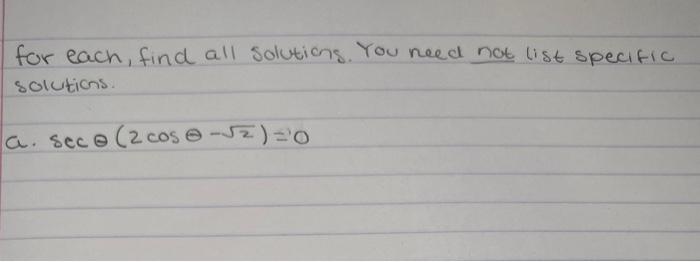 for each, find all solutions. You need not list specific
solutions.
a. sec θ (2 cos θ - √2) = 0